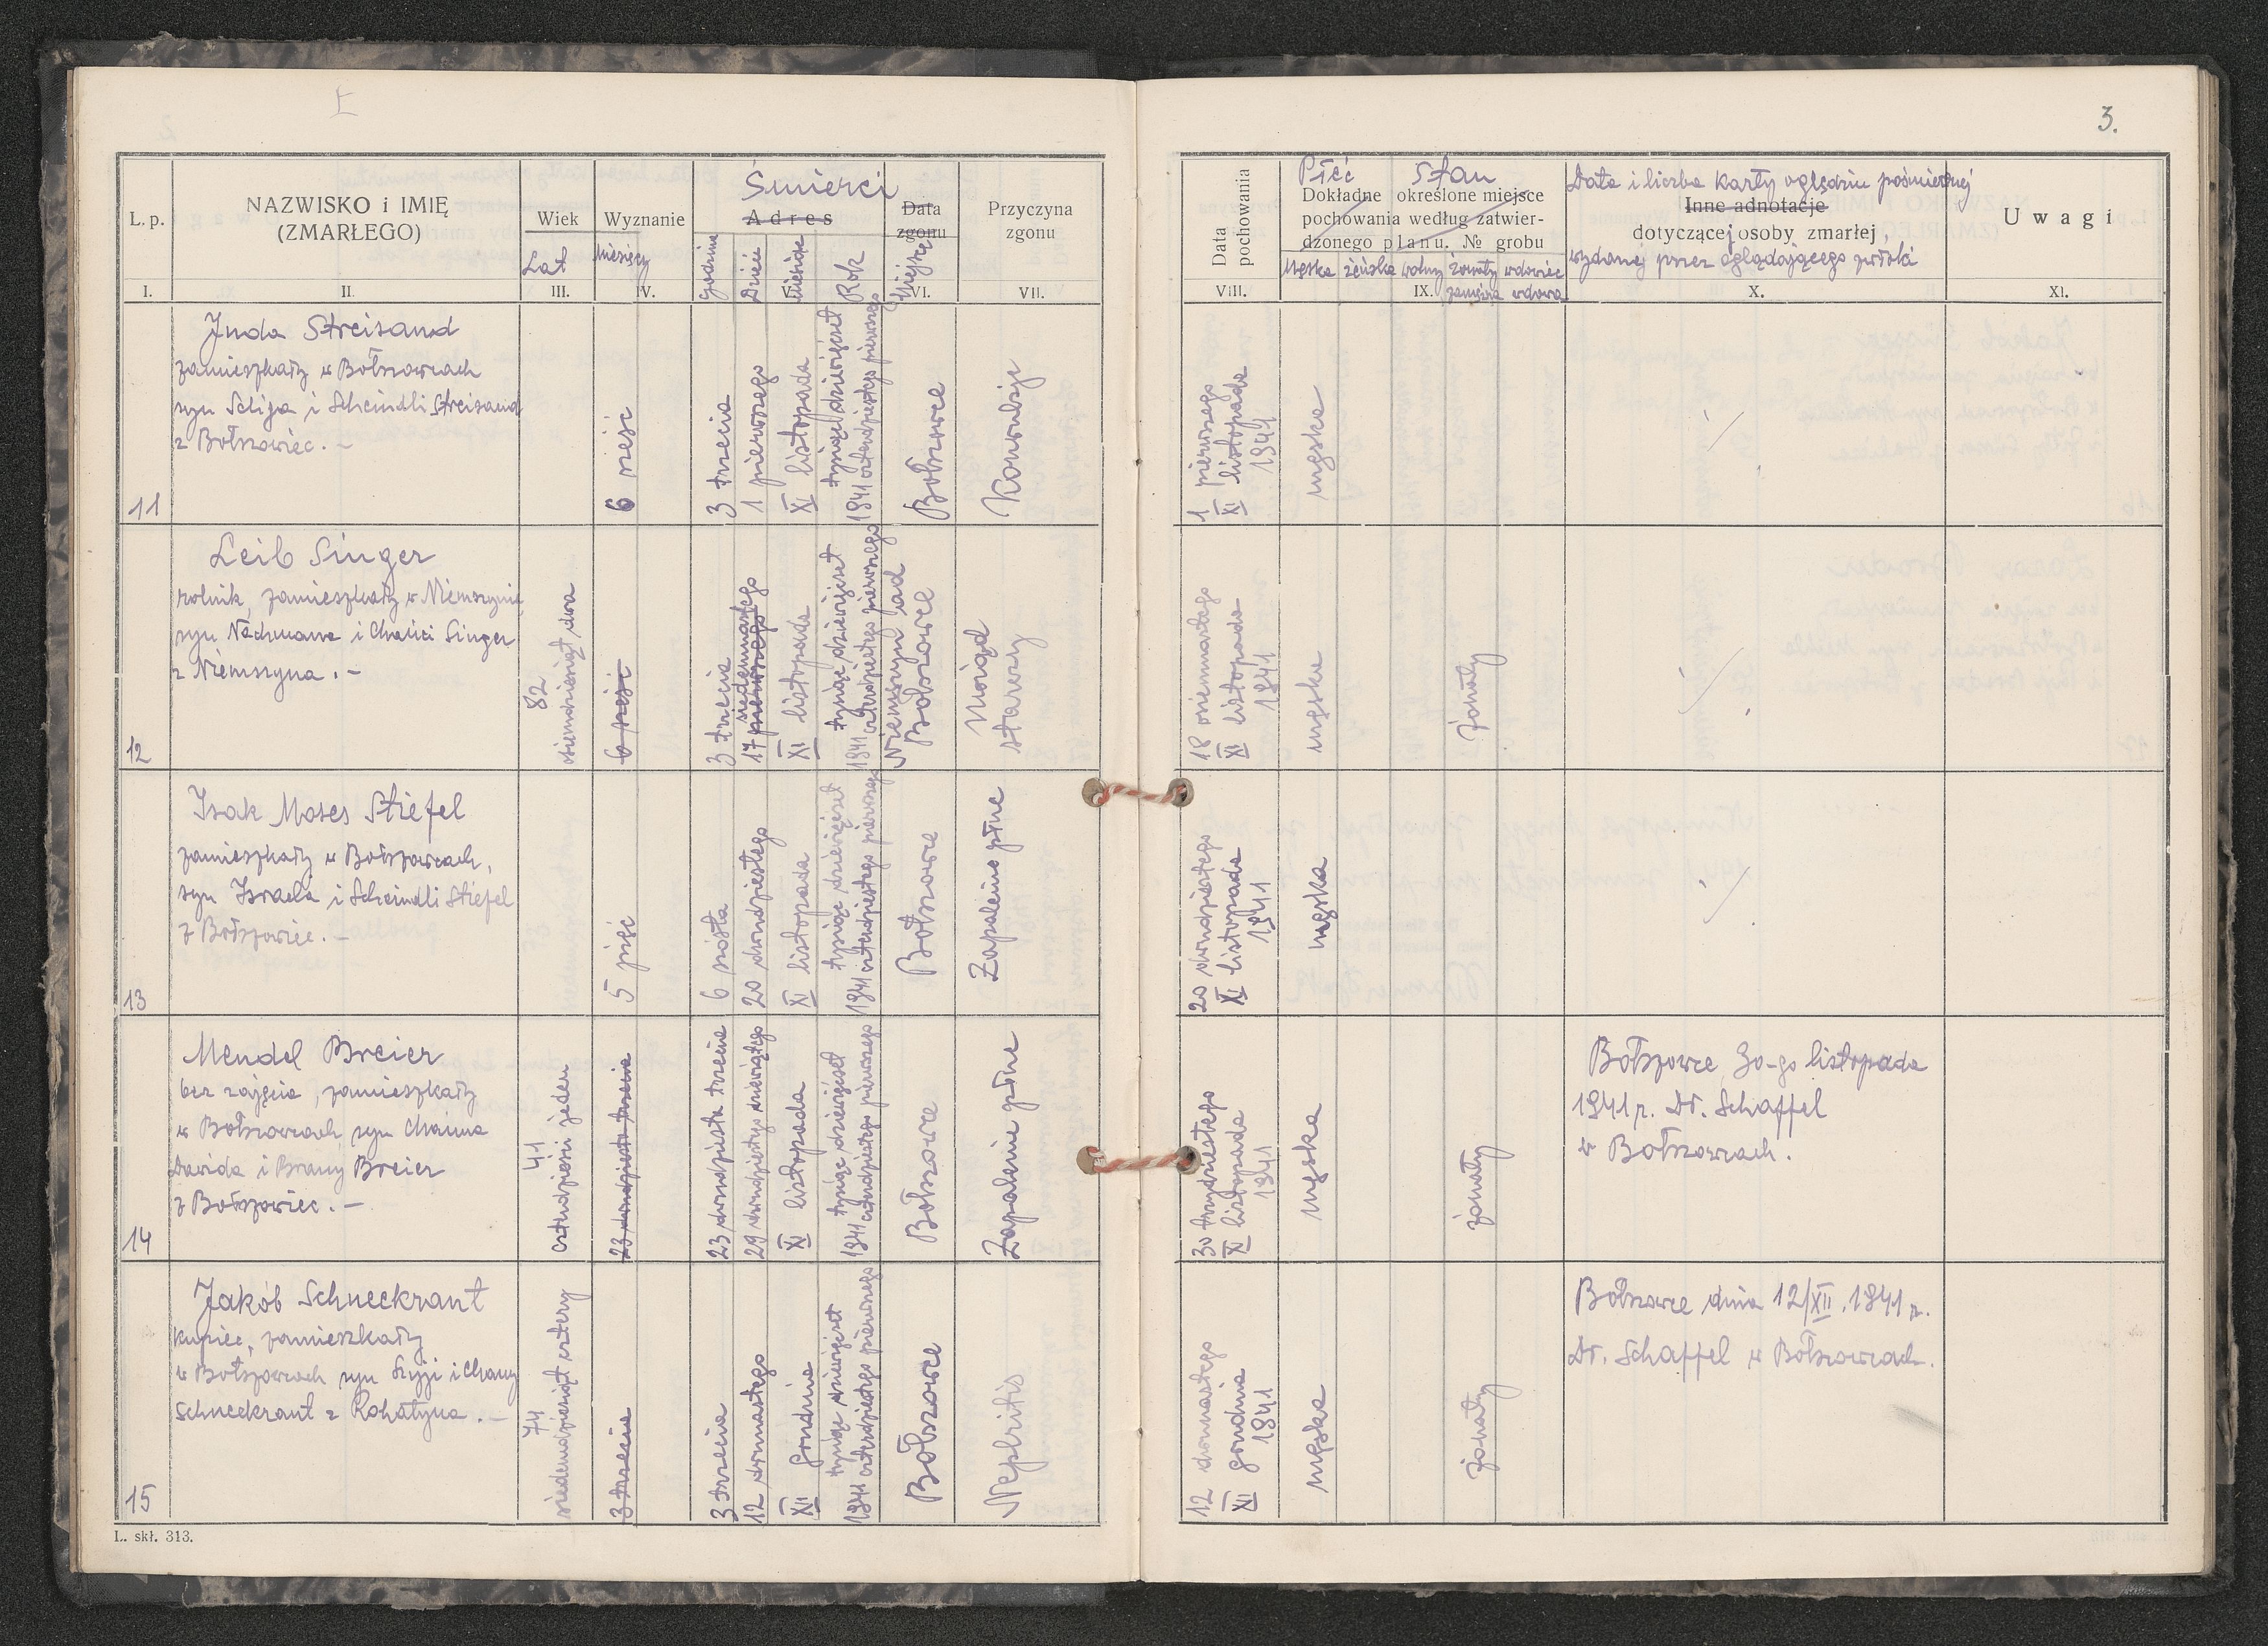 3.
L. p.
NAZWISKO i IMIĘ
(ZMARŁEGO)
Wiek
Lat
Wyznanie
Miesięcy
Śmierci
Adres
godzina
Dzień
Miesiąc
Rok
Data
zgonu
Miejsce
Przyczyna
zgonu
Data
pochowania
Płeć Stan
Dokładne określone miejsce
pochowania według zatwier-
dzonego planu. № grobu
Męska żeńska wolny żonaty wdowiec
zamężna wdowa
Data i liczba karty oględzin pośmiertnej
Inne adnotacje
dotyczącej osoby zmarłej,
wydanej przez oglądającego zwłoki
Uwagi
I. II. III. IV. V. VI. VII. VIII. IX. X. XI.
11
Juda Streisand
zamieszkały w Bołszowcach
syn Seliga i Scheindli Streisand
z Bołszowiec. –
6 sześć
3 trzecia
1 pierwszego
XI listopada
tysiąc dziewięćset
1941 czterdziestego pierwszego
Bołszowce
Konwulsje
1 pierwszego
XI listopada
1941
męska
12
Leib Singer
rolnik, zamieszkały w Niemszynie
syn Nachmana i Singer
z Niemszyna. –
82
osiemdziesiąt dwa
6 sześć
3 trzecia
siedemnastego
17 pierwszego
XI listopada
tysiąc dziewięćset
1941 czterdziestego pierwszego
Niemszyn ad
Bołszowce
Uwiąd
starczy
18 osiemnastego
XI listopada
1941
męska
żonaty
13
Isak Moses Stiefel
zamieszkały w Bołszowcach,
syn Israela i Scheindli Stiefel
z Bołszowiec. –
5 pięć
6 szósta
20 dwudziestego
XI listopada
tysiąc dziewięćset
1941 czterdziestego pierwszego
Bołszowce
Zapalenie płuc
20 dwudziestego
XI listopada
1941
męska
14
Mendel Breier
bez zajęcia, zamieszkały
w Bołszowcach syn Chaima
Dawida i Breier
z Bołszowiec. –
41
czterdzieści jeden
23 dwudziesta trzecia
23 dwudziesta trzecia
29 dwudziestego dziewiątego
XI listopada
tysiąc dziewięćset
1941 czterdziestego pierwszego
Bołszowce
Zapalenie płuc
30 trzydziestego
XI listopada
1941
męska
żonaty
Bołszowce 30-go listopada
1941 r. Dr. Schaffel
w Bołszowcach.
15
Jakób Schneckraut
kupiec, zamieszkały
w Bołszowcach syn i Chany
Schneckraut z Rohatyna. –
74
siedemdziesiąt cztery
3 trzecia
3 trzecia
12 dwunastego
XII grudnia
tysiąc dziewięćset
1941 czterdziestego pierwszego
Bołszowce
Nephritis
12 dwunastego
XII grudnia
1941
męska
żonaty
Bołszowce dnia 12/XII.1941 r.
Dr. Schaffel w Bołszowcach.
L. skł. 313.